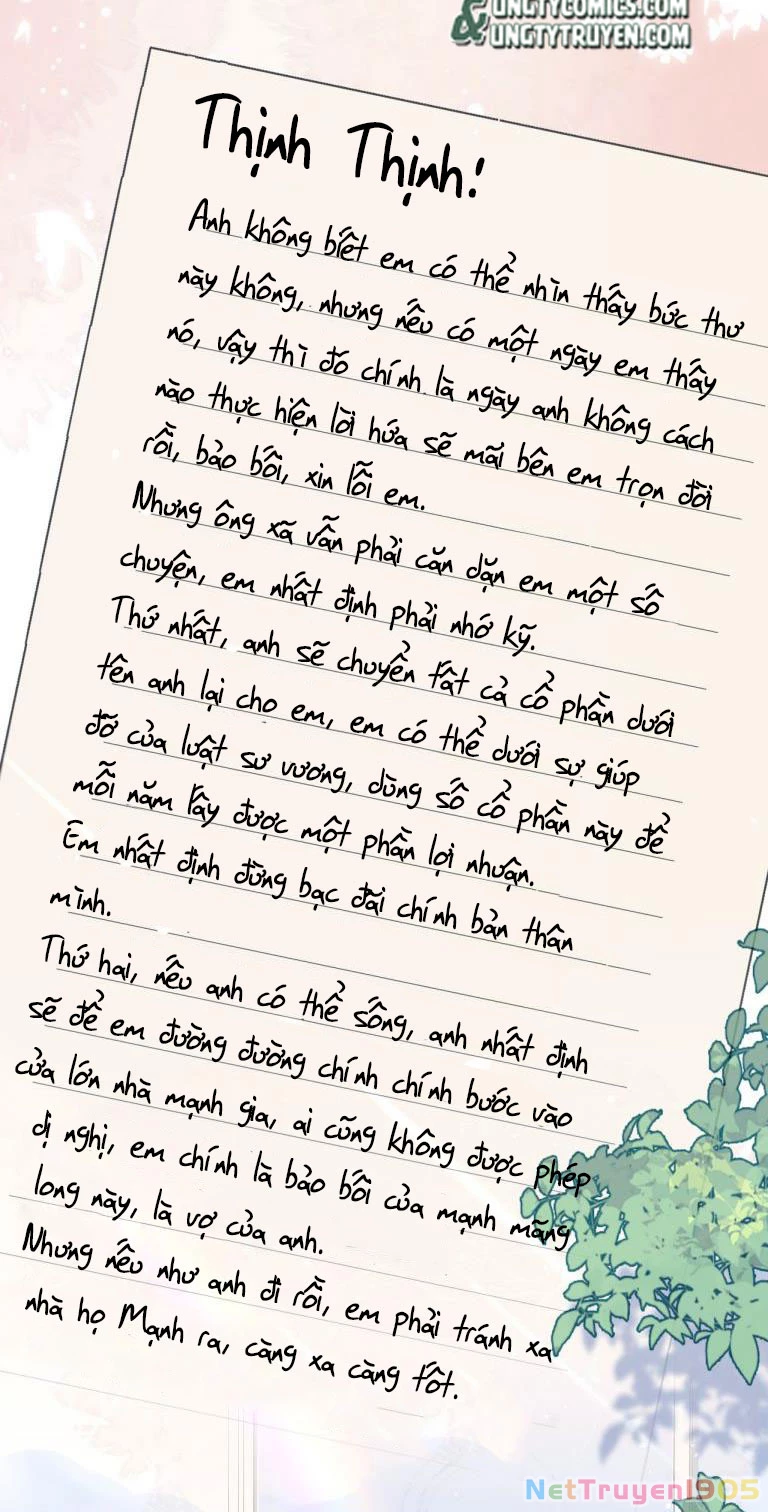 UNGTYCOMICS.COM
& UNGTYTRUYEN.COM
Thịnh Thịnh!
Anh không biết em có thể nhìn thấy bức thư
này không, nhưng nếu có một ngày em thấy
nó, vậy thì đó chính là ngày anh không cách
nào thực hiện lời hứa sẽ mãi bên em trọn đời
rồi, bảo bối, xin lỗi em.
Nhưng ông xã vẫn phải căn dặn em một số
chuyện, em nhất định phải nhớ kỹ.
Thứ nhất, anh sẽ chuyển tất cả cổ phần dưới
tên anh lại cho em, em có thể dưới sự giúp
đỡ của luật sư vương, dùng số cổ phần này để
mỗi năm lấy được một phần lợi nhuận.
Em nhất định đừng bạc đãi chính bản thân
mình.
Thứ hai, nếu anh có thể sống, anh nhất định
sẽ để em đường đường chính chính bước vào
cửa lớn nhà mạnh gia, ai cũng không được phép
dị nghị, em chính là bảo bối của mạnh mãng
long này, là vợ của anh.
Nhưng nếu như anh đi rồi, em phải tránh xa
nhà họ Mạnh ra, càng xa càng tốt.
NetTruyen1905